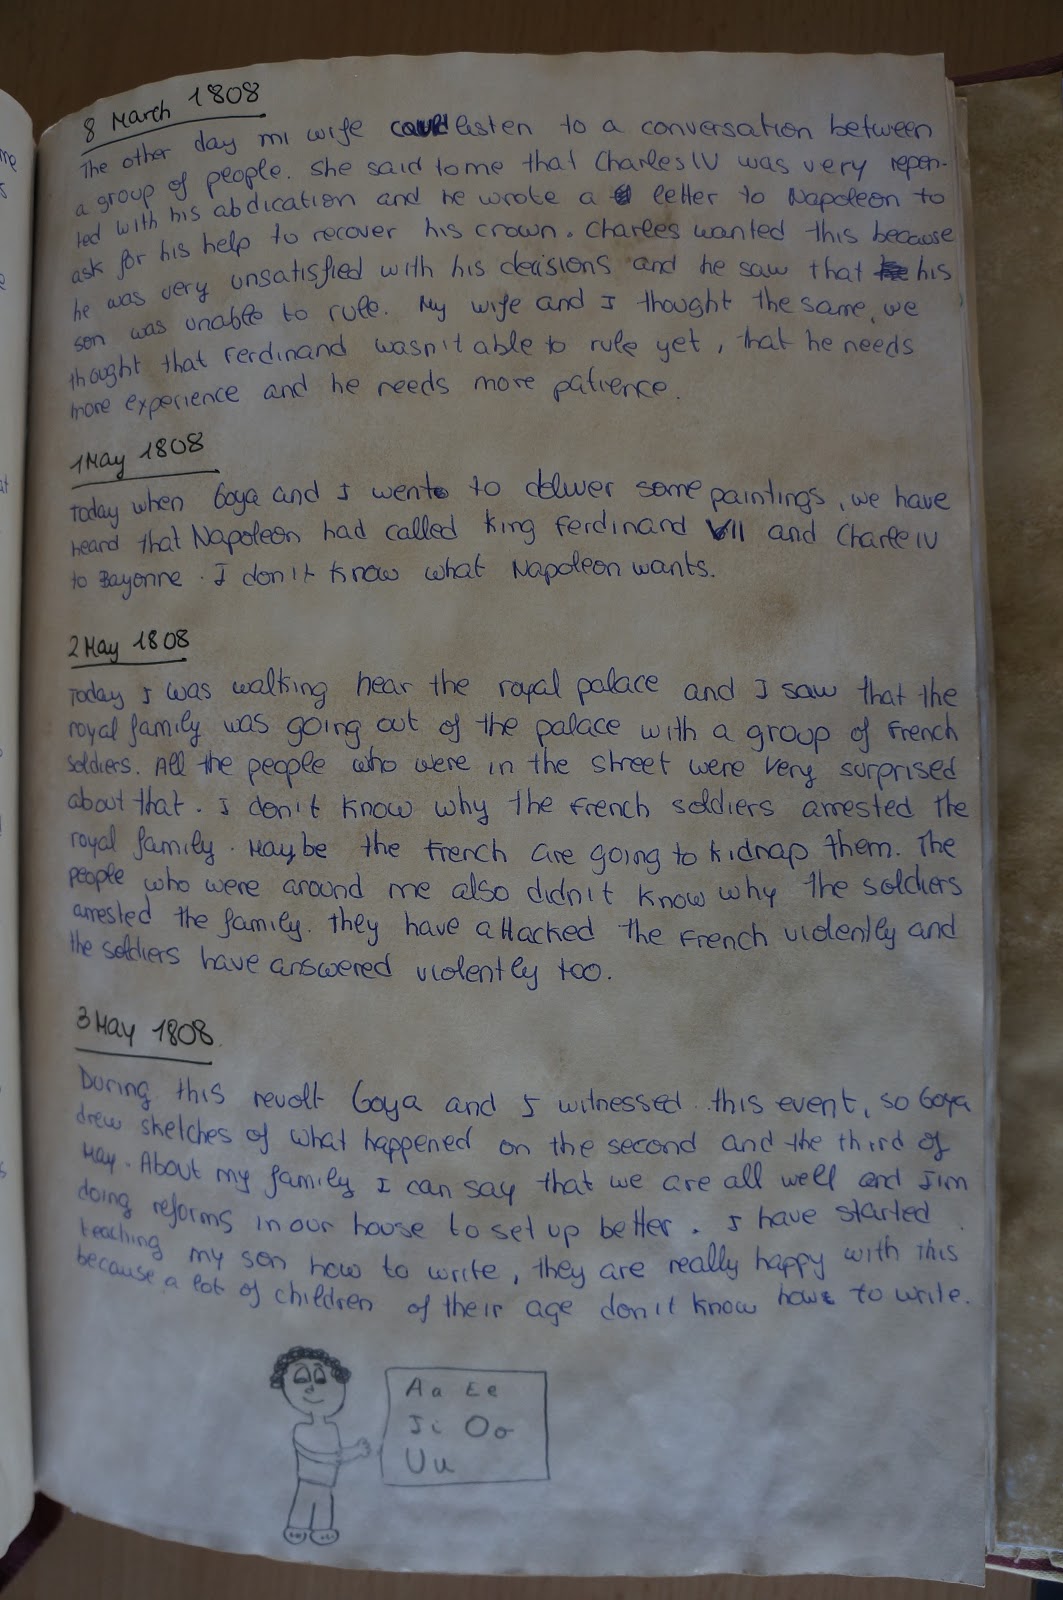 me
8 March 1808
The other day mi wife could listen to a conversation between
a group of people. She said to me that Charles IV was very repen-
ted with his abdication and he wrote a letter to Napoleon to
ask for his help to recover his crown. Charles wanted this because
he was very unsatisfied with his decisions and he saw that his
son was unable to rule. My wife and I thought the same, we
thought that Ferdinand wasn't able to rule yet, that he needs
more experience and he needs more patience.
1 May 1808
Today when Goya and I went to deliver some paintings, we have
heard that Napoleon had called King Ferdinand VII and Charle IV
to Bayonne. I don't know what Napoleon wants.
2 May 1808
Today I was walking near the royal palace and I saw that the
royal family was going out of the palace with a group of French
soldiers. All the people who were in the street were very surprised
about that. I don't know why the French soldiers arrested the
royal family. Maybe the French are going to kidnap them. The
people who were around me also didn't know why the soldiers
arrested the family. They have attacked the French violently and
the soldiers have answered violently too.
3 May 1808.
During this revolt Goya and I witnessed this event, so Goya
drew sketches of what happened on the second and the third of
May. About my family I can say that we are all well and I'm
doing reforms in our house to set up better. I have started
teaching my son how to write, they are really happy with this
because a lot of children of their age don't know how to write.
Aa Ee
Ii Oo
Uu